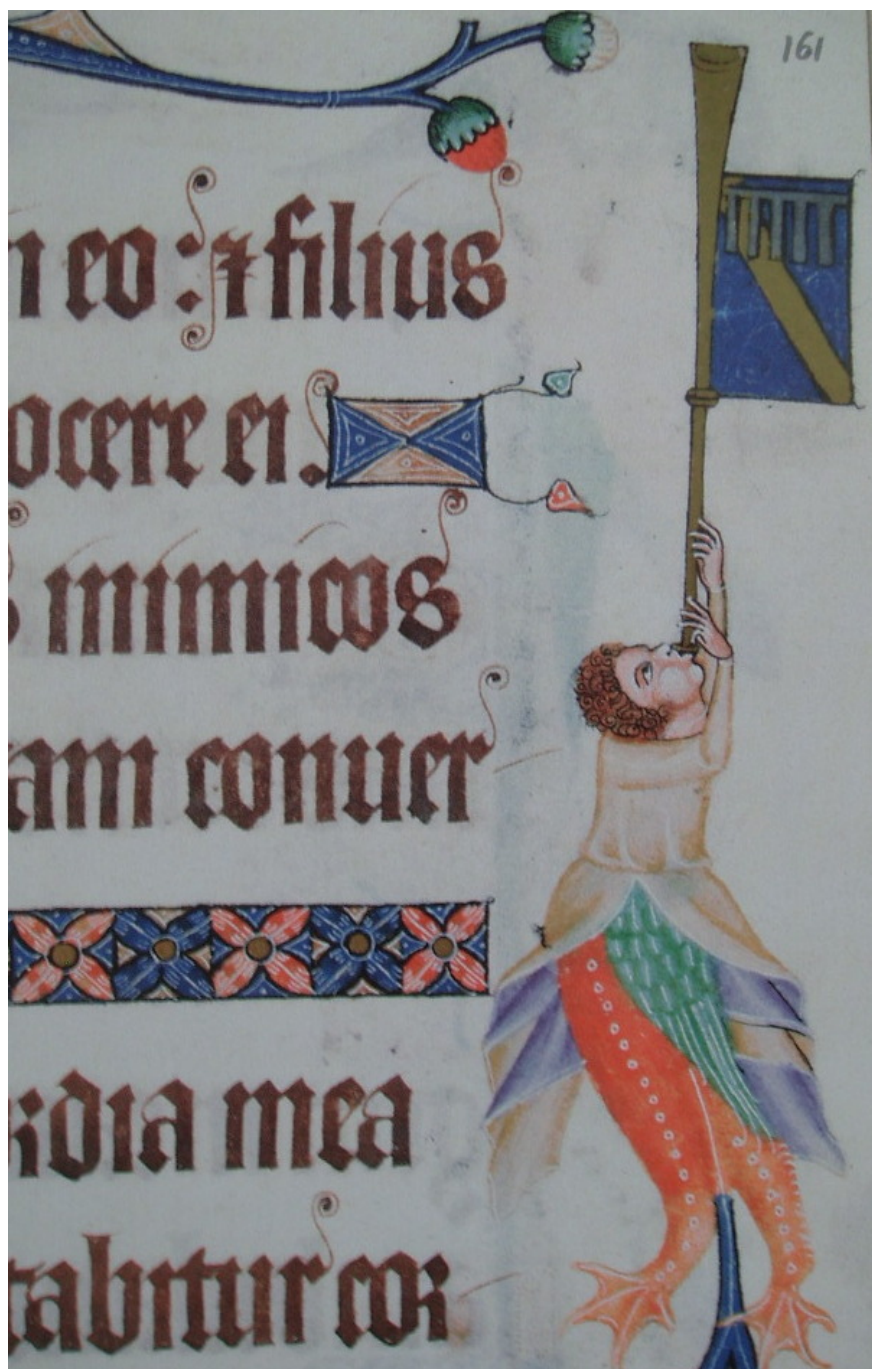 161
n eo : ⁊ filius
ocere ei.
inimicos
am conuer
rdia mea
tabitur cor